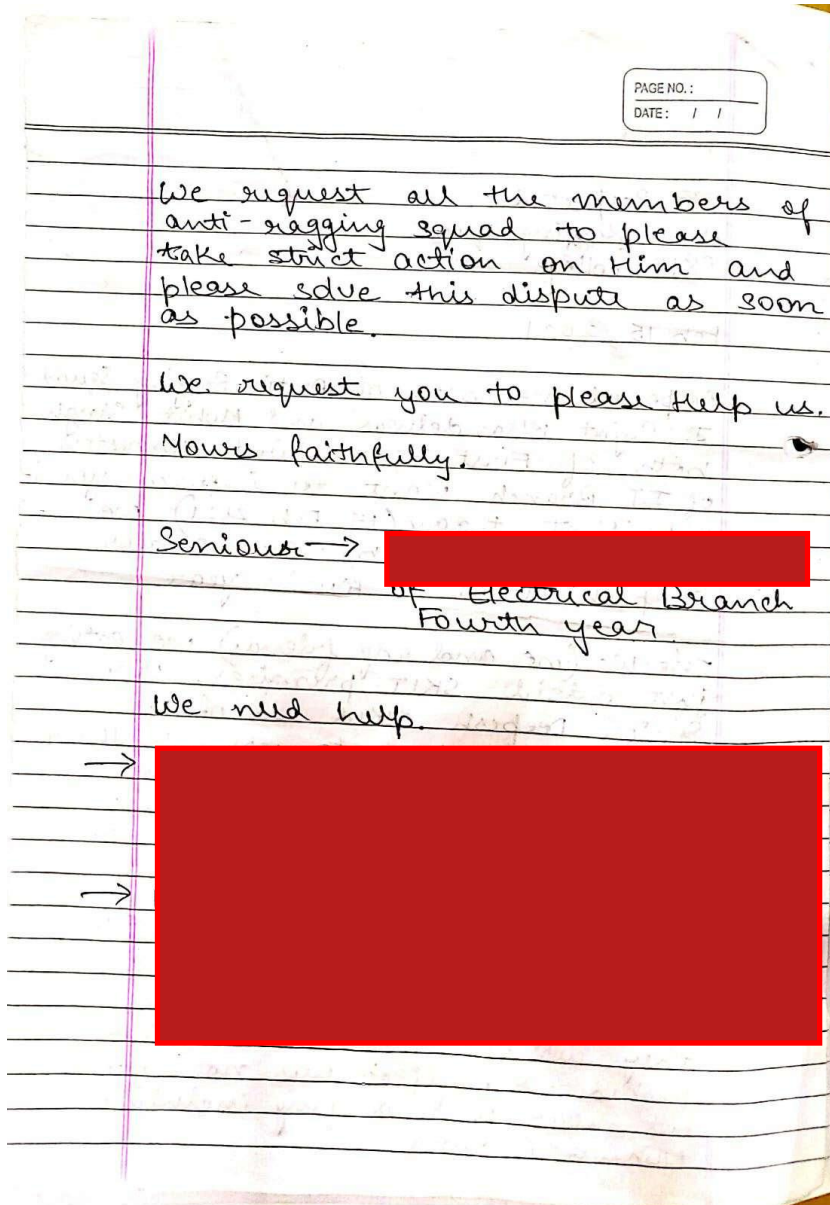 PAGE NO. :
DATE : / /
We request all the members of
anti-ragging squad to please
take strict action on Him and
please solve this dispute as soon
as possible.
We request you to please Help us.
Yours faithfully.
Seniour →
of Electrical Branch
Fourth year
We need help.
→
→